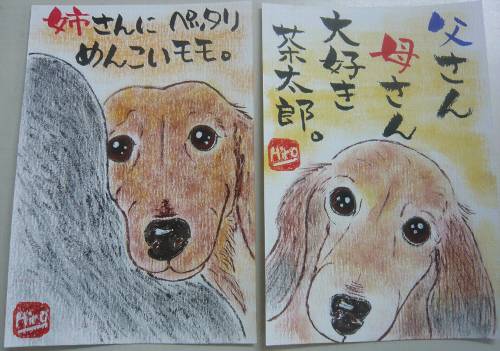 姉さんに ペッタリ
めんこいモモ。
Hiro
父さん
母さん
大好き
茶太郎。
Hiro